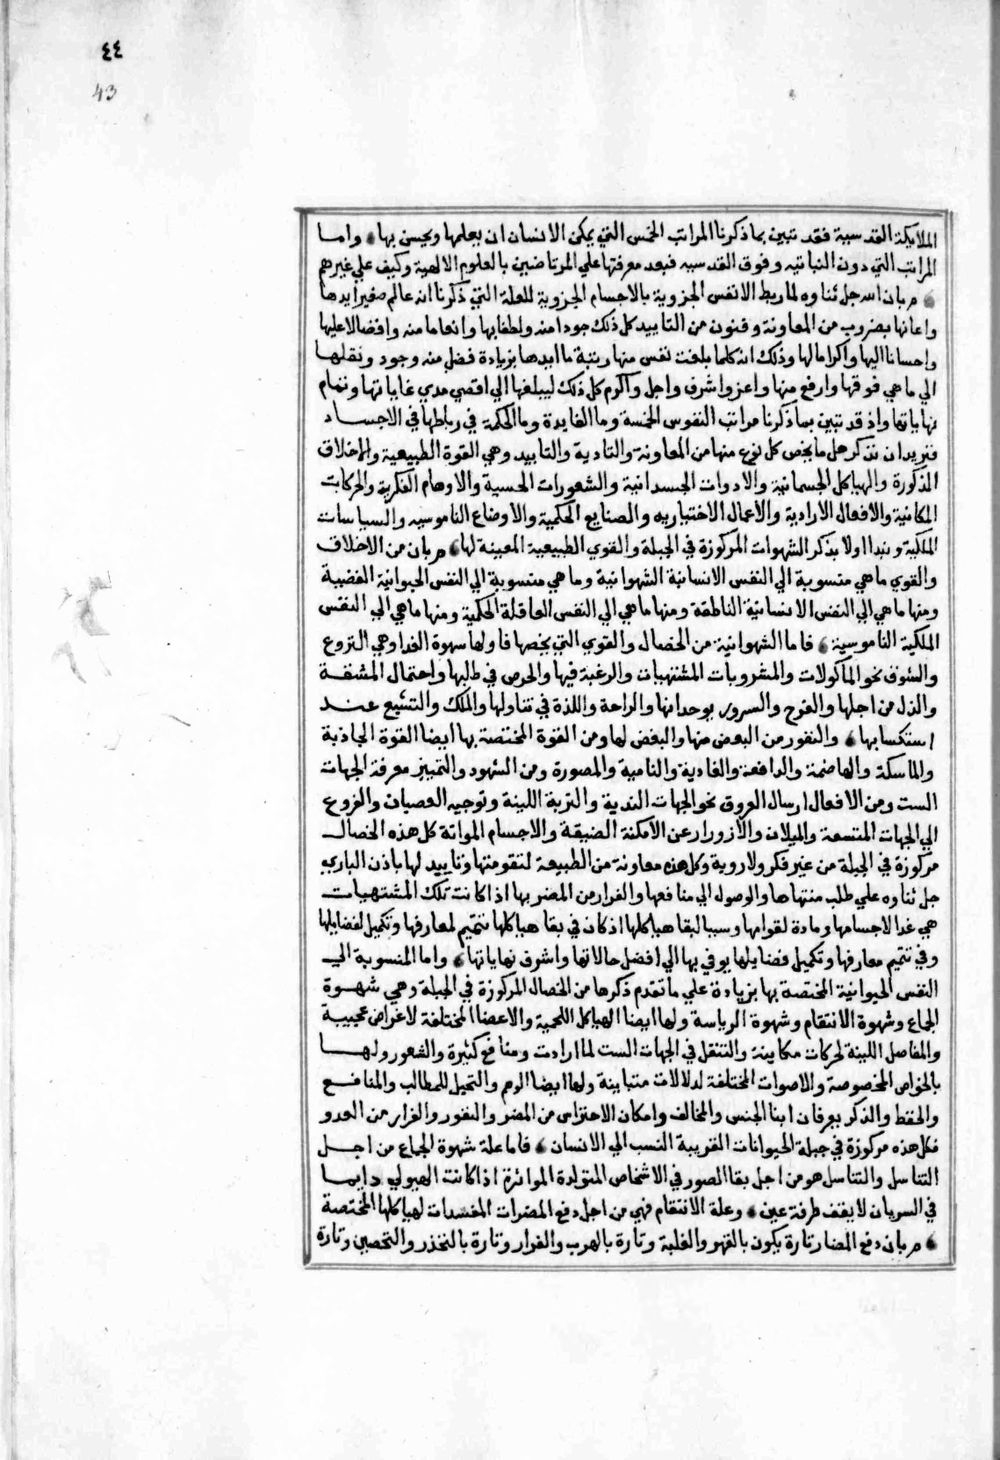 ٤٤
43
الملايكة القدسية فقد تبين بما ذكرنا المراتب الخمس التي يمكن الانسان ان يعلمها ويحس بها واما
المراتب التي دون النباتيه وفوق القدسيه فبعد معرفتها علي المرتاضين بالعلوم الالهية وكيف علي غيرهم
م ربان الله جل ثناوه لما ربط الانفس الجزوية بالاجسام الجزوية للعلة التي ذكرنا انه عالم صغير ايدها
واعانها بضروب من المعاونة وفنون من التاييد كل ذلك جودا منه ولطفا بها وانعاما منه وافضالا عليها
واحسانا اليها واكراما لها وذلك انه كلما بلغت نفس منها رتبة ما ايدها بزيادة فضل منه وجود ونقلها
الي ما هي فوقها وارفع منها واعز واشرف واجل واكرم كل ذلك ليبلغها الي اقصي مدي غاياتها وتمام
نهاياتها واذ قد تبين بما ذكرنا مراتب النفوس الخمسة وما الفايدة وما الحكمة في رباطها في الاجساد
فنريد ان نذكر جل ما يخص كل نوع منها من المعاونة والتادية والتاييد وهي القوة الطبيعية والاخلاق
المذكورة والهياكل الجسمانية والادوات الجسدانية والشعورات الحسية والاوهام الفكرية والحركات
المكانية والافعال الارادية والاعمال الاختياريه والصنايع الحكمية والاوضاع الناموسيه والسياسات
الملكية ونبدا اولا بذكر الشهوات المركوزة في الجبلة والقوي الطبيعية المعينة لها م ربان من الاخلاق
والقوي ما هي منسوبة الي النفس الانسانية الشهوانية وما هي منسوبة الي النفس الحيوانية الغضبية
ومنها ما هي الي النفس الانسانية الناطقة ومنها ما هي الي النفس العاقلة الحكمية ومنها ما هي الي النفس
الملكية الناموسية فاما الشهوانية من الخصال والقوي التي يخصها فاولها سهوة الغدا وهي النزوع
والشوق نحو الماكولات والمشروبات المشتهيات والرغبة فيها والحرص في طلبها واحتمال المشقة
والذل من اجلها والفرح والسرور بوجدانها والراحة واللذة في تناولها والملك والتشبع عند
استكسابها والنفور من البعض منها والبغض لها ومن القوة المختصة بها ايضا القوة الجاذبة
والماسكة والهاضمة والدافعة والغادية والنامية والمصورة ومن الشهود والتمييز معرفة الجهات
الست ومن الافعال ارسال العروق نحو الجهات الندية والتربة اللينة وتوجيه العصيان والفروع
الي الجهات المتسعة والميلان والازورار عن الامكنة الضيقة والاجسام المواتة كل هذه الخصال
مركوزة في الجبلة من غير فكر ولا روية وكل هذه معاونة من الطبيعة لتقومتها وتاييد لها باذن الباري
جل ثناوه علي طلب منتهاها والوصول الي منافعها والفرار من المضر بها اذا كانت تلك المشتهيات
هي غدا لاجسامها ومادة لقوامها وسببا لبقا هياكلها اذ كان في بقا هياكلها تتميم لمعارفها وتكميل لفضايلها
وفي تتميم معارفها وتكميل فضايلها يوفي بها الي افضل حالاتها واشرف نهاياتها واما المنسوبة الي
النفس الحيوانية المختصة بها بزيادة علي ما تقدم ذكرها من الخصال المركوزة في الجبلة وهي شهوة
الجماع وشهوة الانتقام وشهوة الرياسة ولها ايضا الهياكل اللحمية والاعضا المختلفة لاغراض عجيبية
والمفاصل اللينة لحركات مكاينة والتنقل في الجهات الست لما ارادت ومنافع كثيرة والشعور ولها
بالخواص المخصوصة والاصوات المختلفة لدلالات متباينة ولها ايضا الوهم والتحيل للمطالب والمنافع
والحفظ والذكر بعرفان ابنا الجنس والمخالف وامكان الاحتراس من المضر والنفور والفرار من العدو
فكل هذه مركوزة في جبلة الحيوانات القريبة النسب الي الانسان فاما علة شهوة الجماع من اجل
التناسل والتناسل هو من اجل بقا الصور في الاشخاص المتولدة المواترة اذا كانت الهيولي دايما
في السريان لا يقف طرفة عين وعلة الانتقام فهي من اجل دفع المضرات المفسدات لهياكلها المختصة
م ربان دفع المضار تارة يكون بالقهر والغلبة وتارة بالهرب والفرار وتارة بالتحذر والتحصين وتارة